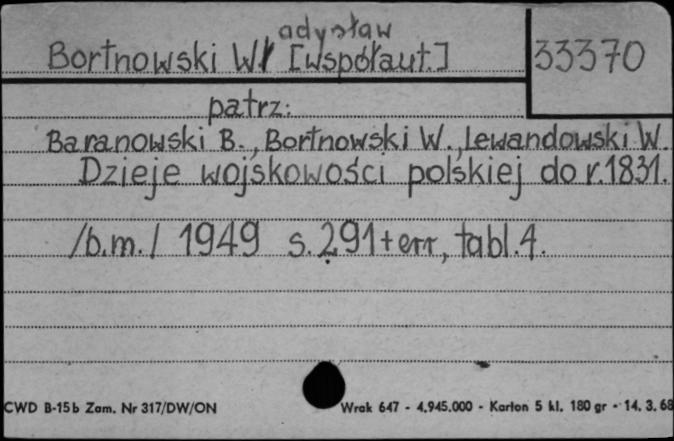 adysław
Bortnowski Wł [współaut.] 33370
patrz:
Baranowski B., Bortnowski W., Lewandowski W.
Dzieje wojskowości polskiej do r.1831.
/b.m./ 1949 s.291+err, tabl.4.
CWD B-15b Zam. Nr 317/DW/ON Wrak 647 - 4.945.000 - Karton 5 kl. 180 gr - 14. 3. 68